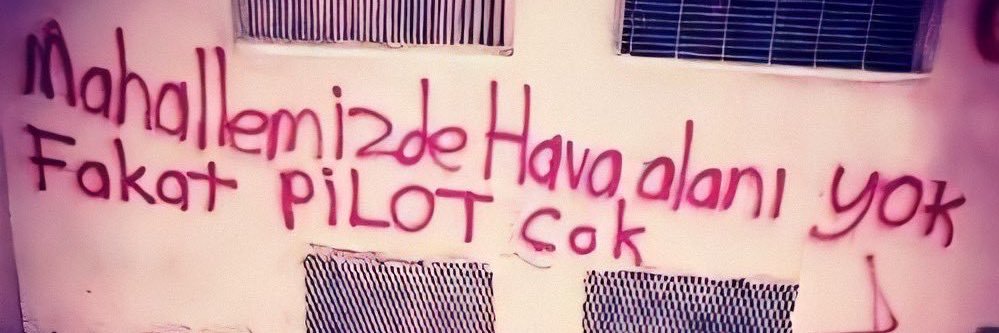 Mahallemizde Hava alanı yok
Fakat PİLOT Çok